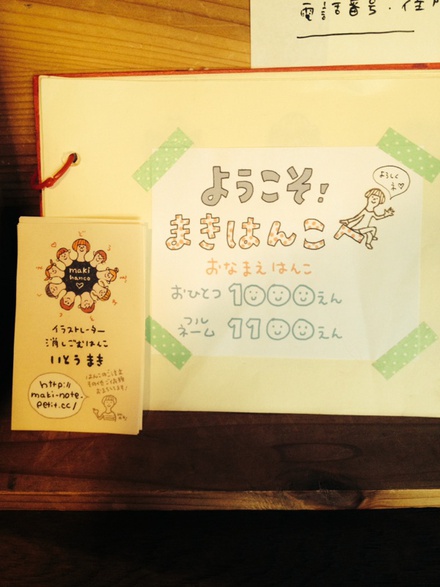 電話番号・住所
ようこそ!
よろしくネ
まきはんこ
おなまえはんこ
おひとつ 1000えん
フルネーム 1100えん
maki
hanco
イラストレーター
消しごむはんこ
いとう まき
http://
maki-note.
petit.cc/